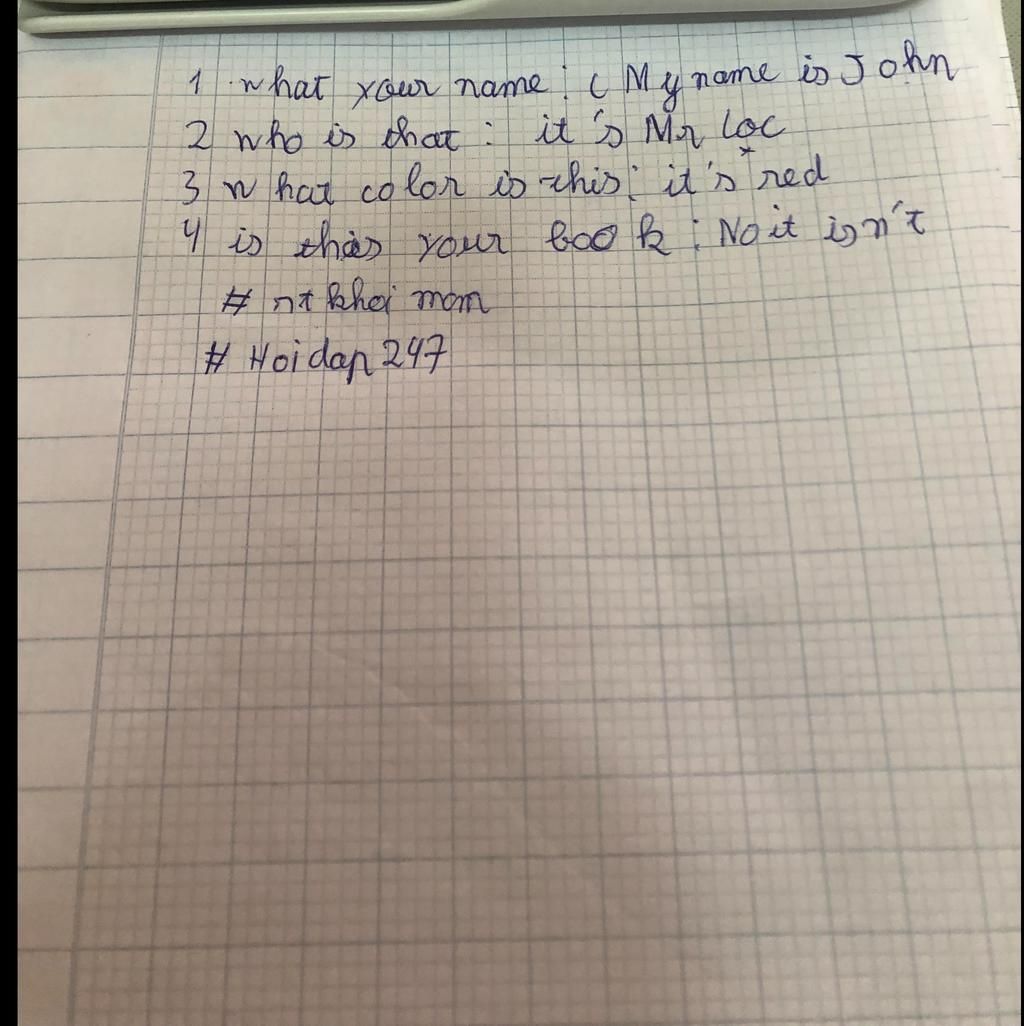 1 what your name : ( My name is John
2 who is that : it's Mr Loc
3 what color is this : it's red
4 is this your book : No it isn't
# ntkhoi mom
# Hoidap247